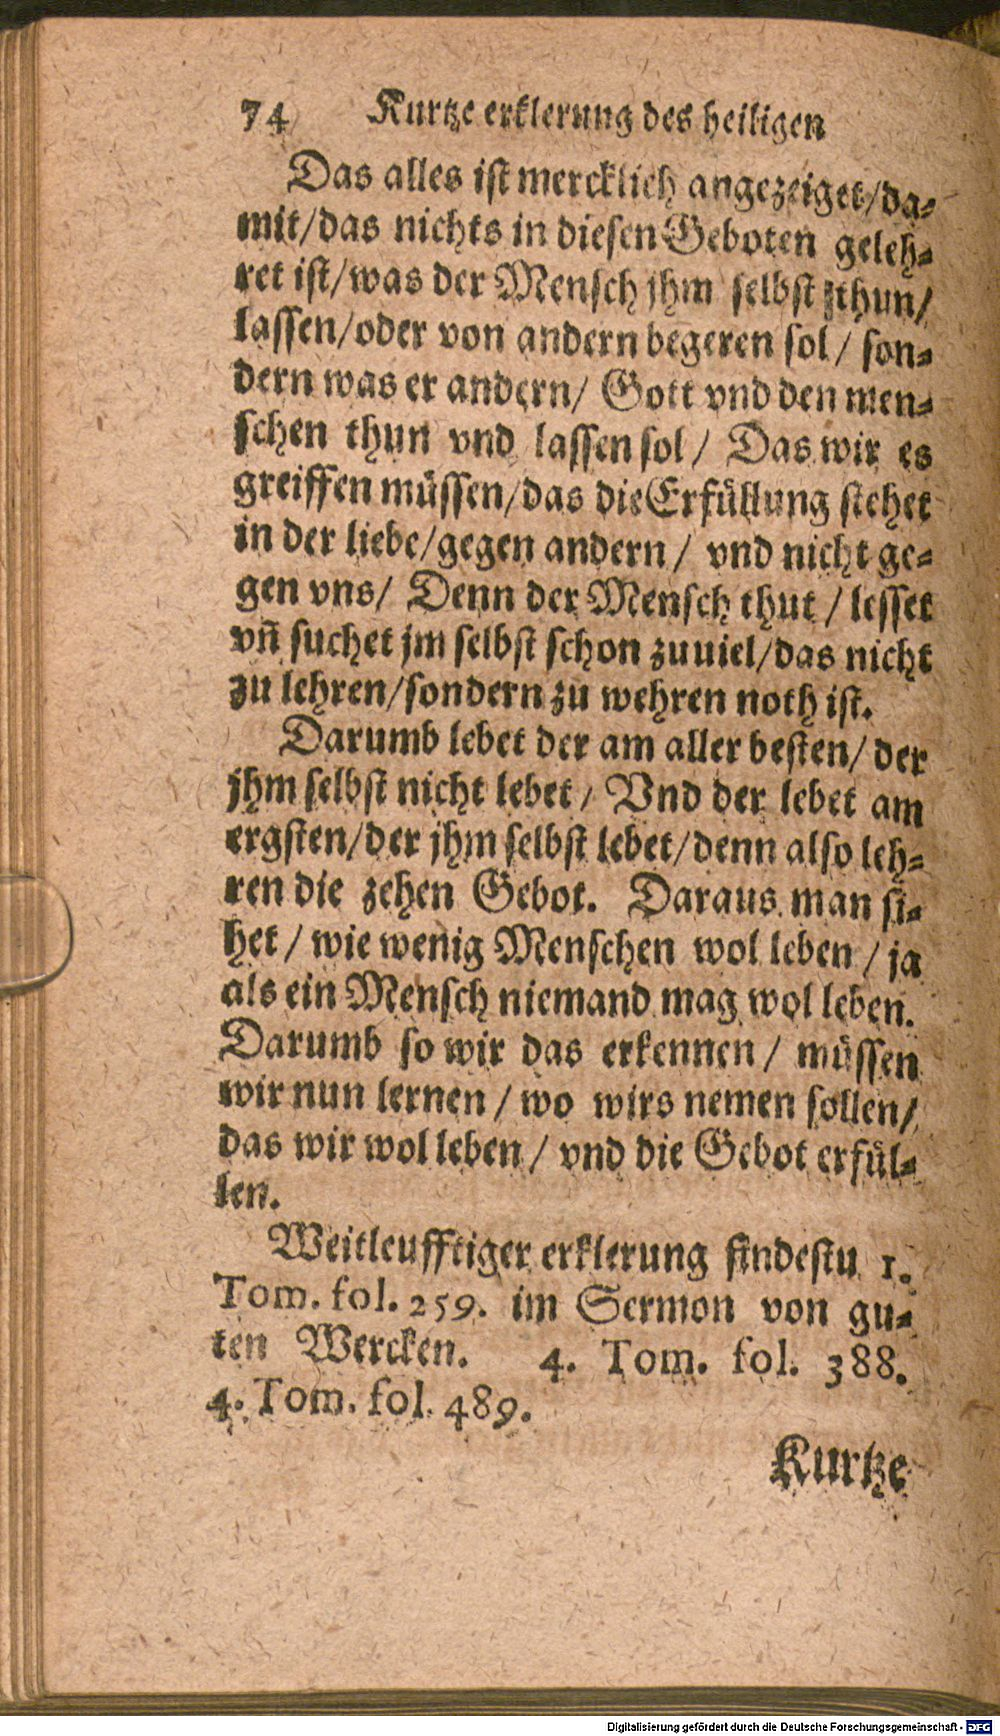 74 Kurtze erklerung des heiligen
Das alles ist mercklich angezeiget/da-
mit/das nichts in diesen Geboten geleh-
ret ist/was der Mensch jhm selbst zthun/
lassen/oder von andern begeren sol/ son-
dern was er andern/ Gott vnd den men-
schen thun vnd lassen sol/ Das wir es
greiffen müssen/das die Erfüllung stehet
in der liebe/gegen andern/ vnd nicht ge-
gen vns/ Denn der Mensch thut/ lesset
vñ suchet jm selbst schon zuuiel/das nicht
zu lehren/sondern zu wehren noth ist.
Darumb lebet der am aller besten/ der
jhm selbst nicht lebet/ Vnd der lebet am
ergsten/der jhm selbst lebet/denn also leh-
ren die zehen Gebot. Daraus man si-
het/ wie wenig Menschen wol leben/ ja
als ein Mensch niemand mag wol leben.
Darumb so wir das erkennen/ müssen
wir nun lernen/ wo wirs nemen sollen/
das wir wol leben/ vnd die Gebot erfül-
len.
Weitleufftiger erklerung findestu 1.
Tom. fol. 259. im Sermon von gu-
ten Wercken. 4. Tom. fol. 388.
4. Tom. fol. 489.
Kurtze
Digitalisierung gefördert durch die Deutsche Forschungsgemeinschaft - DFG